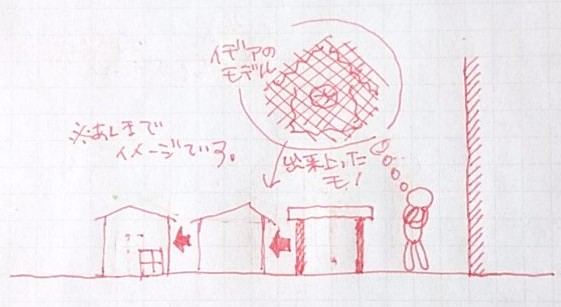 イデアの
モデル
※あくまで
イメージです。
出来上った
モノ